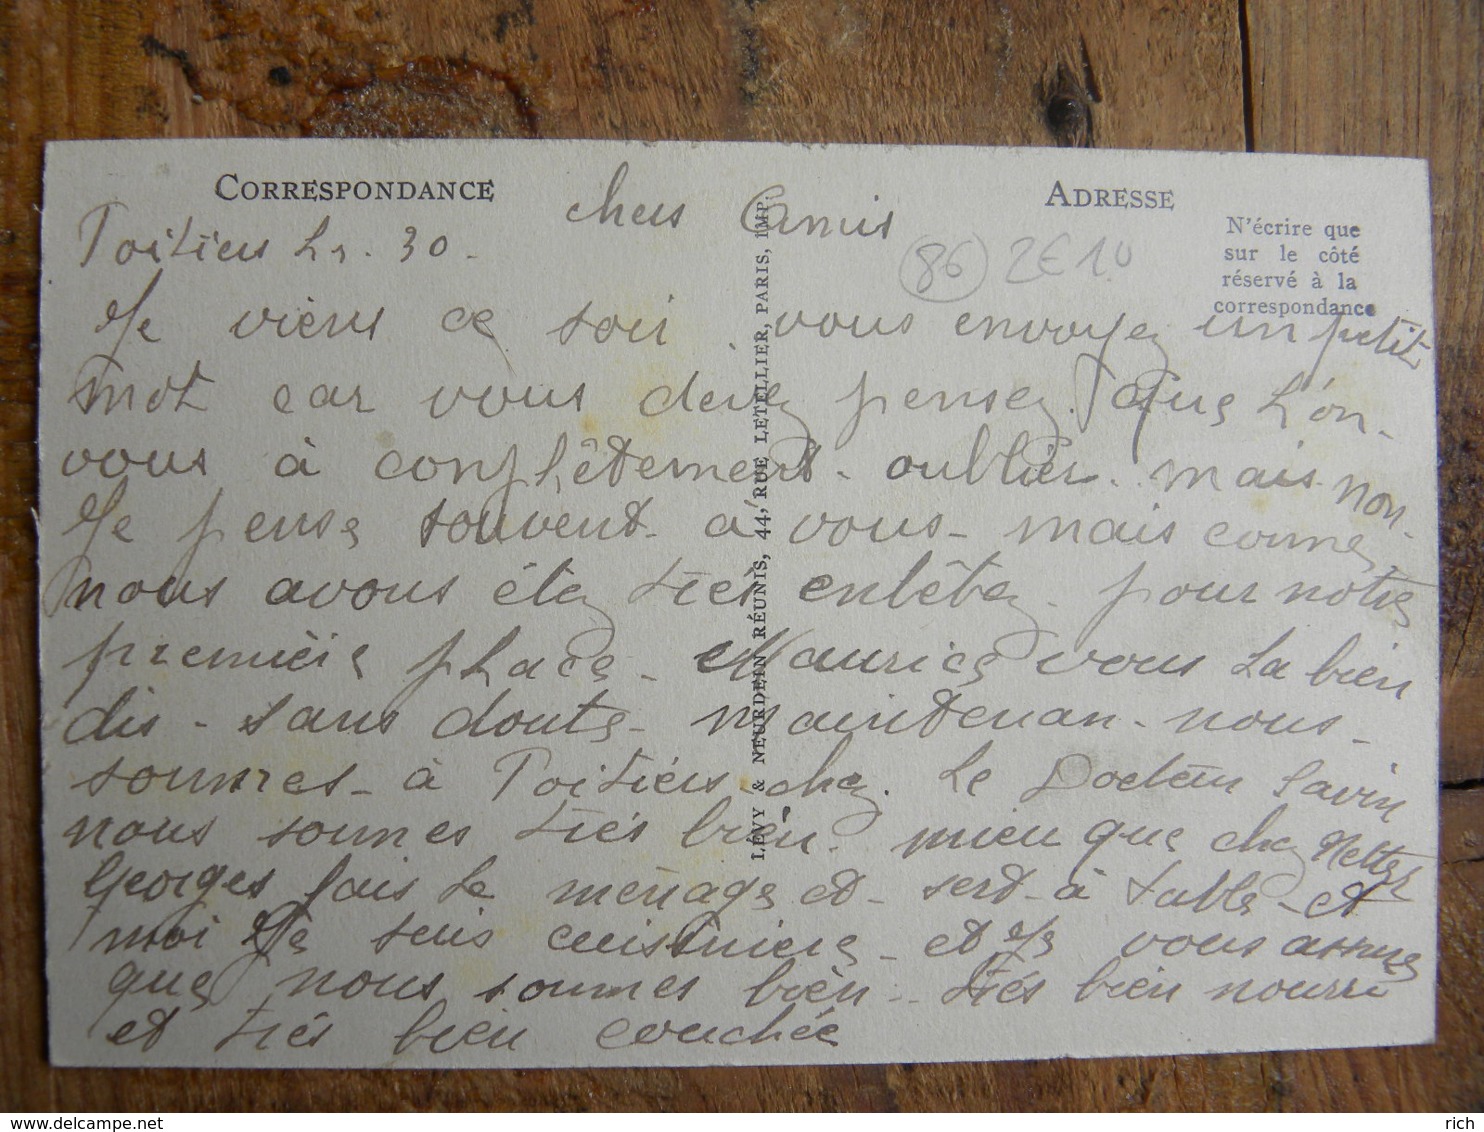 CORRESPONDANCE
chers Camis
ADRESSE
N'écrire que
sur le côté
réservé à la
correspondance
Poitiers 30.
86 2€
Je viens ce soir vous envoyez un petit
mot car vous devez pensez que L'on
vous à complêtement oublier mais non.
Je pense souvent a vous mais comme
nous avons étez trés entêtez pour notre
premiére place Maurice vous La bien
dis sans doute maintenan nous
sommes à Poitiers chez Le Docteur Savin
nous sommes trés bien mieu que chez
Georges fais Le ménage et sert à table et
moi Je suis cuisiniere et Je vous assure
que nous sommes bien trés bien nourri
et trés bien couchée
LÉVY & NEURDEIN RÉUNIS, 44, RUE LETELLIER, PARIS, IMP.
rich